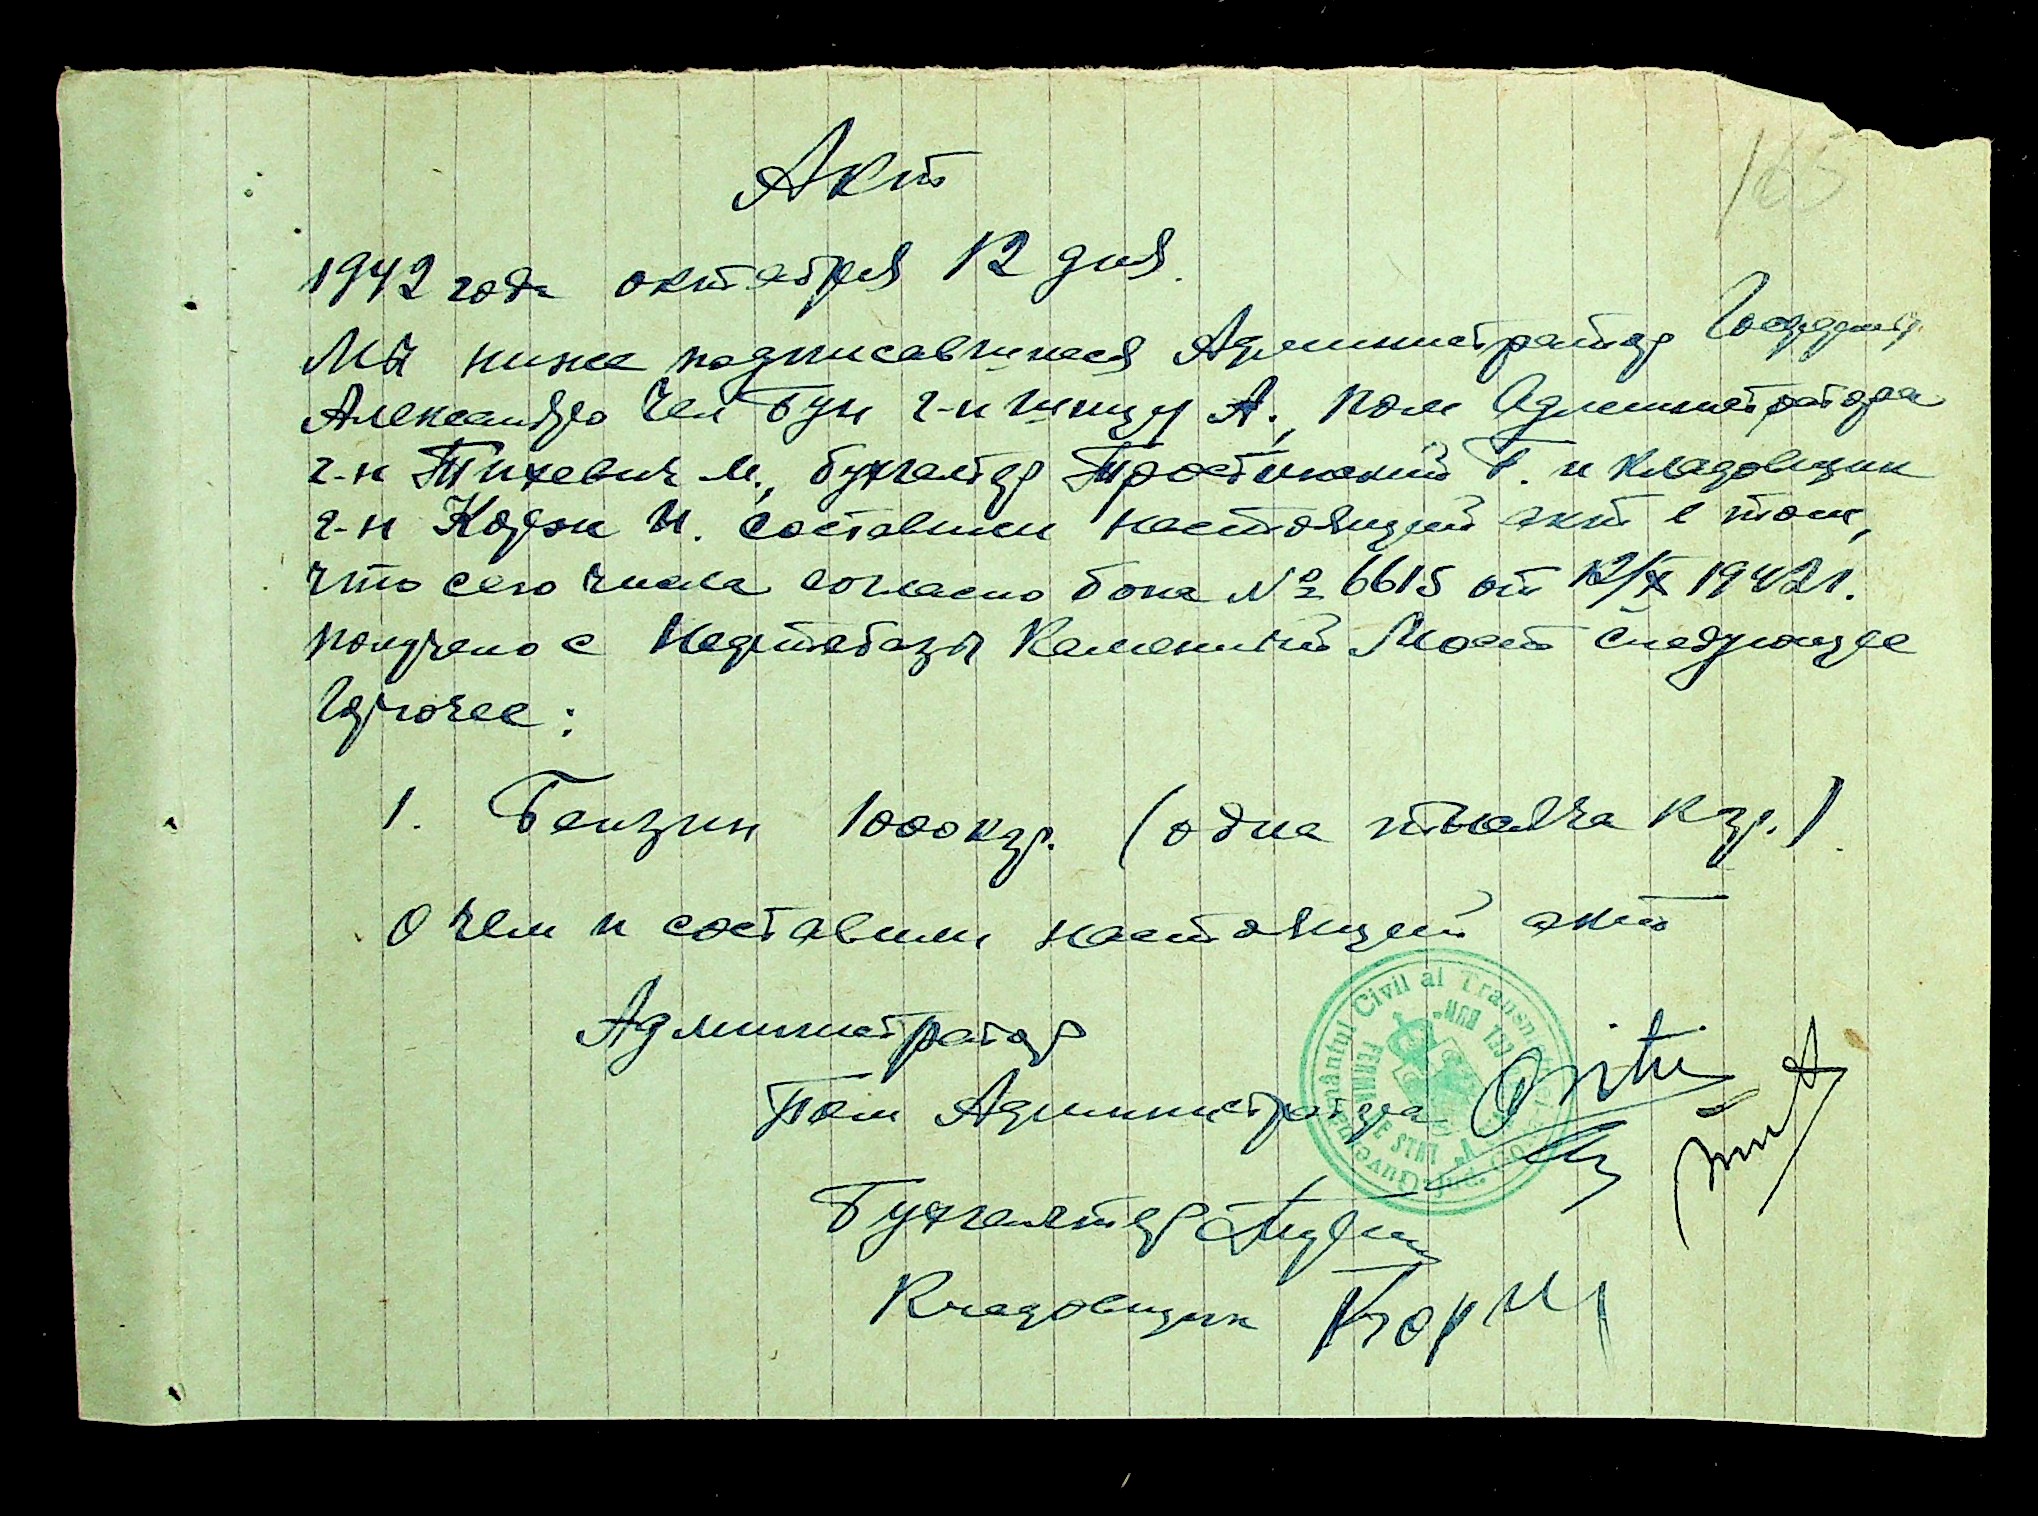 165
Акт
1942 года октября 12 дня.
Мы ниже подписавшиеся Администратор Госфермы
Александро Чел Бун г-н Шицу А., пом Администратора
г-н Тихевич М., бухгалтер Тростинский Г. и кладовщик
г-н Коржи И. составили настоящий акт в том,
что сего числа согласно бона № 6615 от 12/X 1942 г.
получено с Нефтебазы Каменный Мост следующее
Горючее:
1. Бензин 1000 кгр. (одна тысяча кгр.)
О чем и составили настоящий акт
Администратор
Пом Администратора
Бухгалтер
Кладовщик
Guvernământul Civil al Transnistriei
FERMA DE STAT
CEL BUN